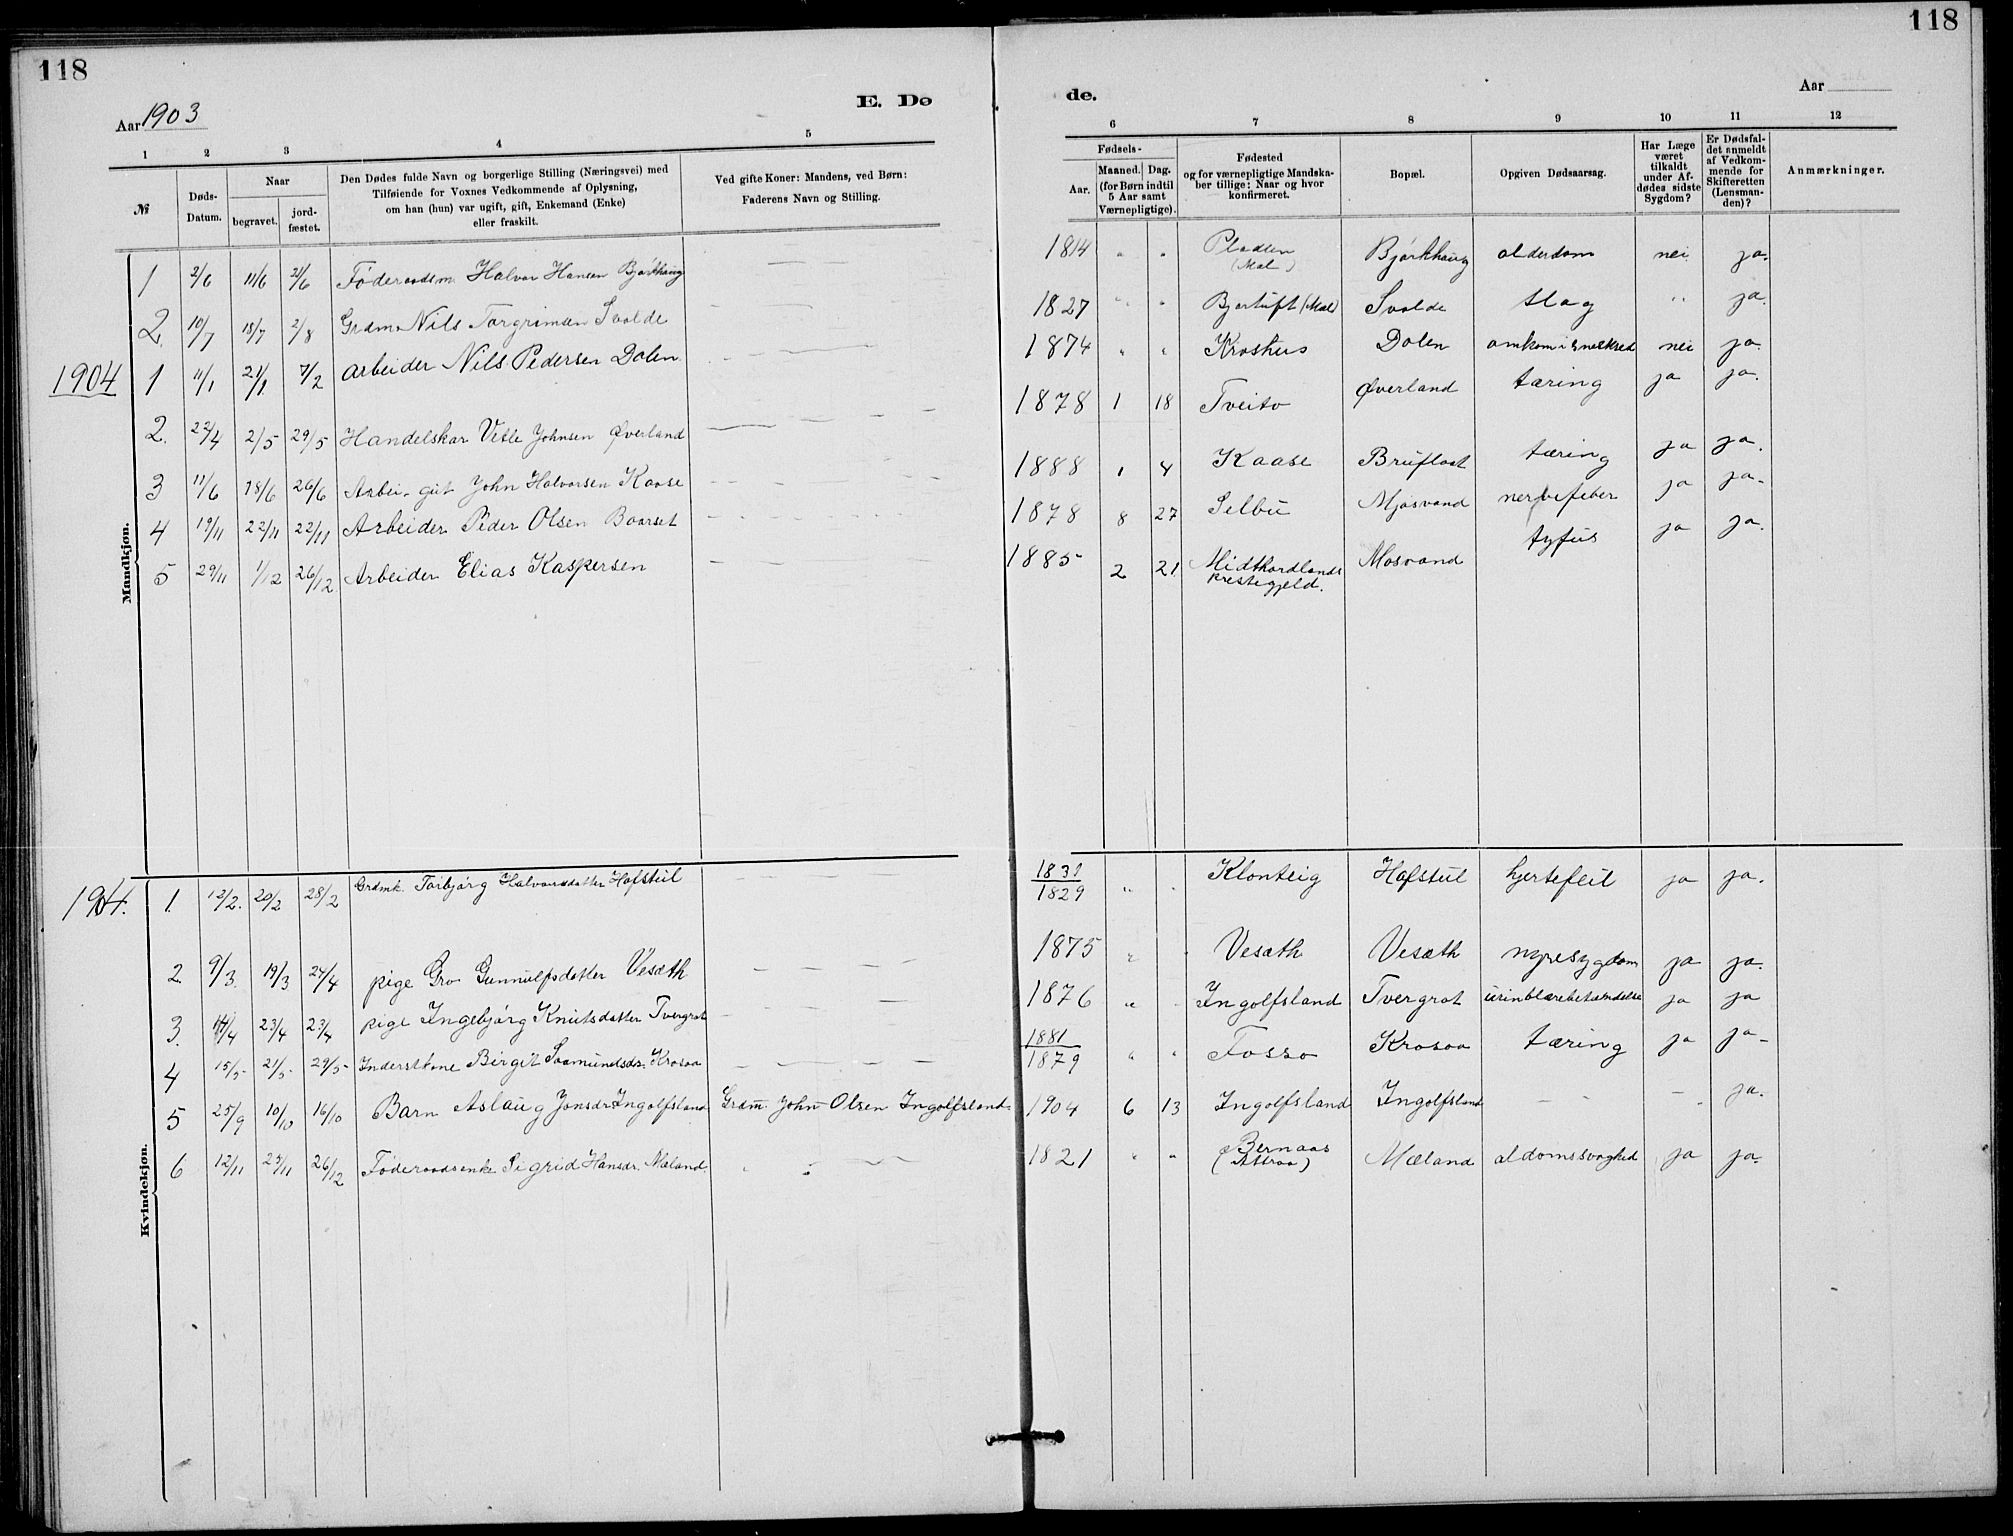 118
118
Aar 1903
E. Dø
de.
Aar
1 2 3 4 5 6 7 8 9 10 11 12
№
Døds-
Datum.
Naar
begravet.
jord-
fæstet.
Den Dødes fulde Navn og borgerlige Stilling (Næringsvei) med
Tilføiende for Voxnes Vedkommende af Oplysning,
om han (hun) var ugift, gift, Enkemand (Enke)
eller fraskilt.
Ved gifte Koner: Mandens, ved Børn:
Faderens Navn og Stilling.
Fødsels-
Aar.
Maaned. Dag.
(for Børn indtil
5 Aar samt
Værnepligtige).
Fødested
og for værnepligtige Mandska-
ber tillige: Naar og hvor
konfirmeret.
Bopæl.
Opgiven Dødsaarsag.
Har Læge
været
tilkaldt
under Af-
dødes sidste
Sygdom?
Er Dødsfal-
det anmeldt
af Vedkom-
mende for
Skifteretten
(Lensman-
den)?
Anmærkninger.
Mandkjøn.
1 2/6 11/6 21/6 Føderaadsm. Halvor Hansen Bjørkhaug 1814 " " (Mæl) Bjørkhaug alderdom nei ja.
2. 10/7 18/7 2/8 Grdm. Nils Torgrimsen Svalde 1827 " " Bjertuft (Mæl) Svalde slag " ja.
1904 1 11/1 21/1 7/2 Arbeider Nils Pedersen Dalen 1874 " " Kroshus Dalen omkom i sneskred nei ja.
2. 22/4 2/5 29/5 Handelskar Vetle Johnsen Øverland 1878 1 18 Tveito Øverland tæring ja ja.
3 11/6 18/6 26/6 Arbei. gut John Halvorsen Kaase 1888 1 4 Kaase Bruflaat tæring ja ja.
4 19/11 22/11 22/11 Arbeider Peder Olsen Baarset 1878 8 27 Selbu Mjøsvand nervefeber ja ja.
5 29/11 1/12 26/12 Arbeider Elias Kaspersen 1885 2 21 Midthordlands Mosvand tyfus ja ja.
prestegjeld.
Kvindekjøn.
1904. 1. 12/2. 20/2 28/2 Grdmk. Torbjørg Halvorsdatter Hofstul 1831 / 1829 " " Klonteig Hofstul hjertefeil ja ja.
2 9/3. 19/3 24/4 pige Gro Gunnulfsdatter Vesæth 1875 " " Vesæth Vesæth nyresygdom ja ja.
3. 14/4 23/4 23/4 pige Ingebjørg Knutsdatter Tvergrot 1876 " " Ingolfsland Tvergrot urinblærebetændelse ja ja
4 15/5 21/5 29/5 Inderstkone Birgit Saamundsdr. Krosoa 1881 / 1879 " " Fosso Krosoa tæring ja ja
5 25/9 10/10 16/10 Barn Aslaug Jonsdr. Ingolfsland Grdm. John Olsen Ingolfsland 1904 6 13 Ingolfsland Ingolfsland – – ja.
6 12/11 24/11 26/12 Føderaadsenke Sigrid Hansdr. Mæland 1821 " " Bernaas Mæland aldomssvaghed ja ja.
(Attraa)